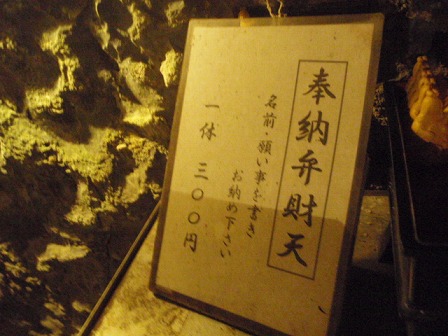 奉納弁財天
名前・願い事を書き
お納め下さい
一体 三〇〇円